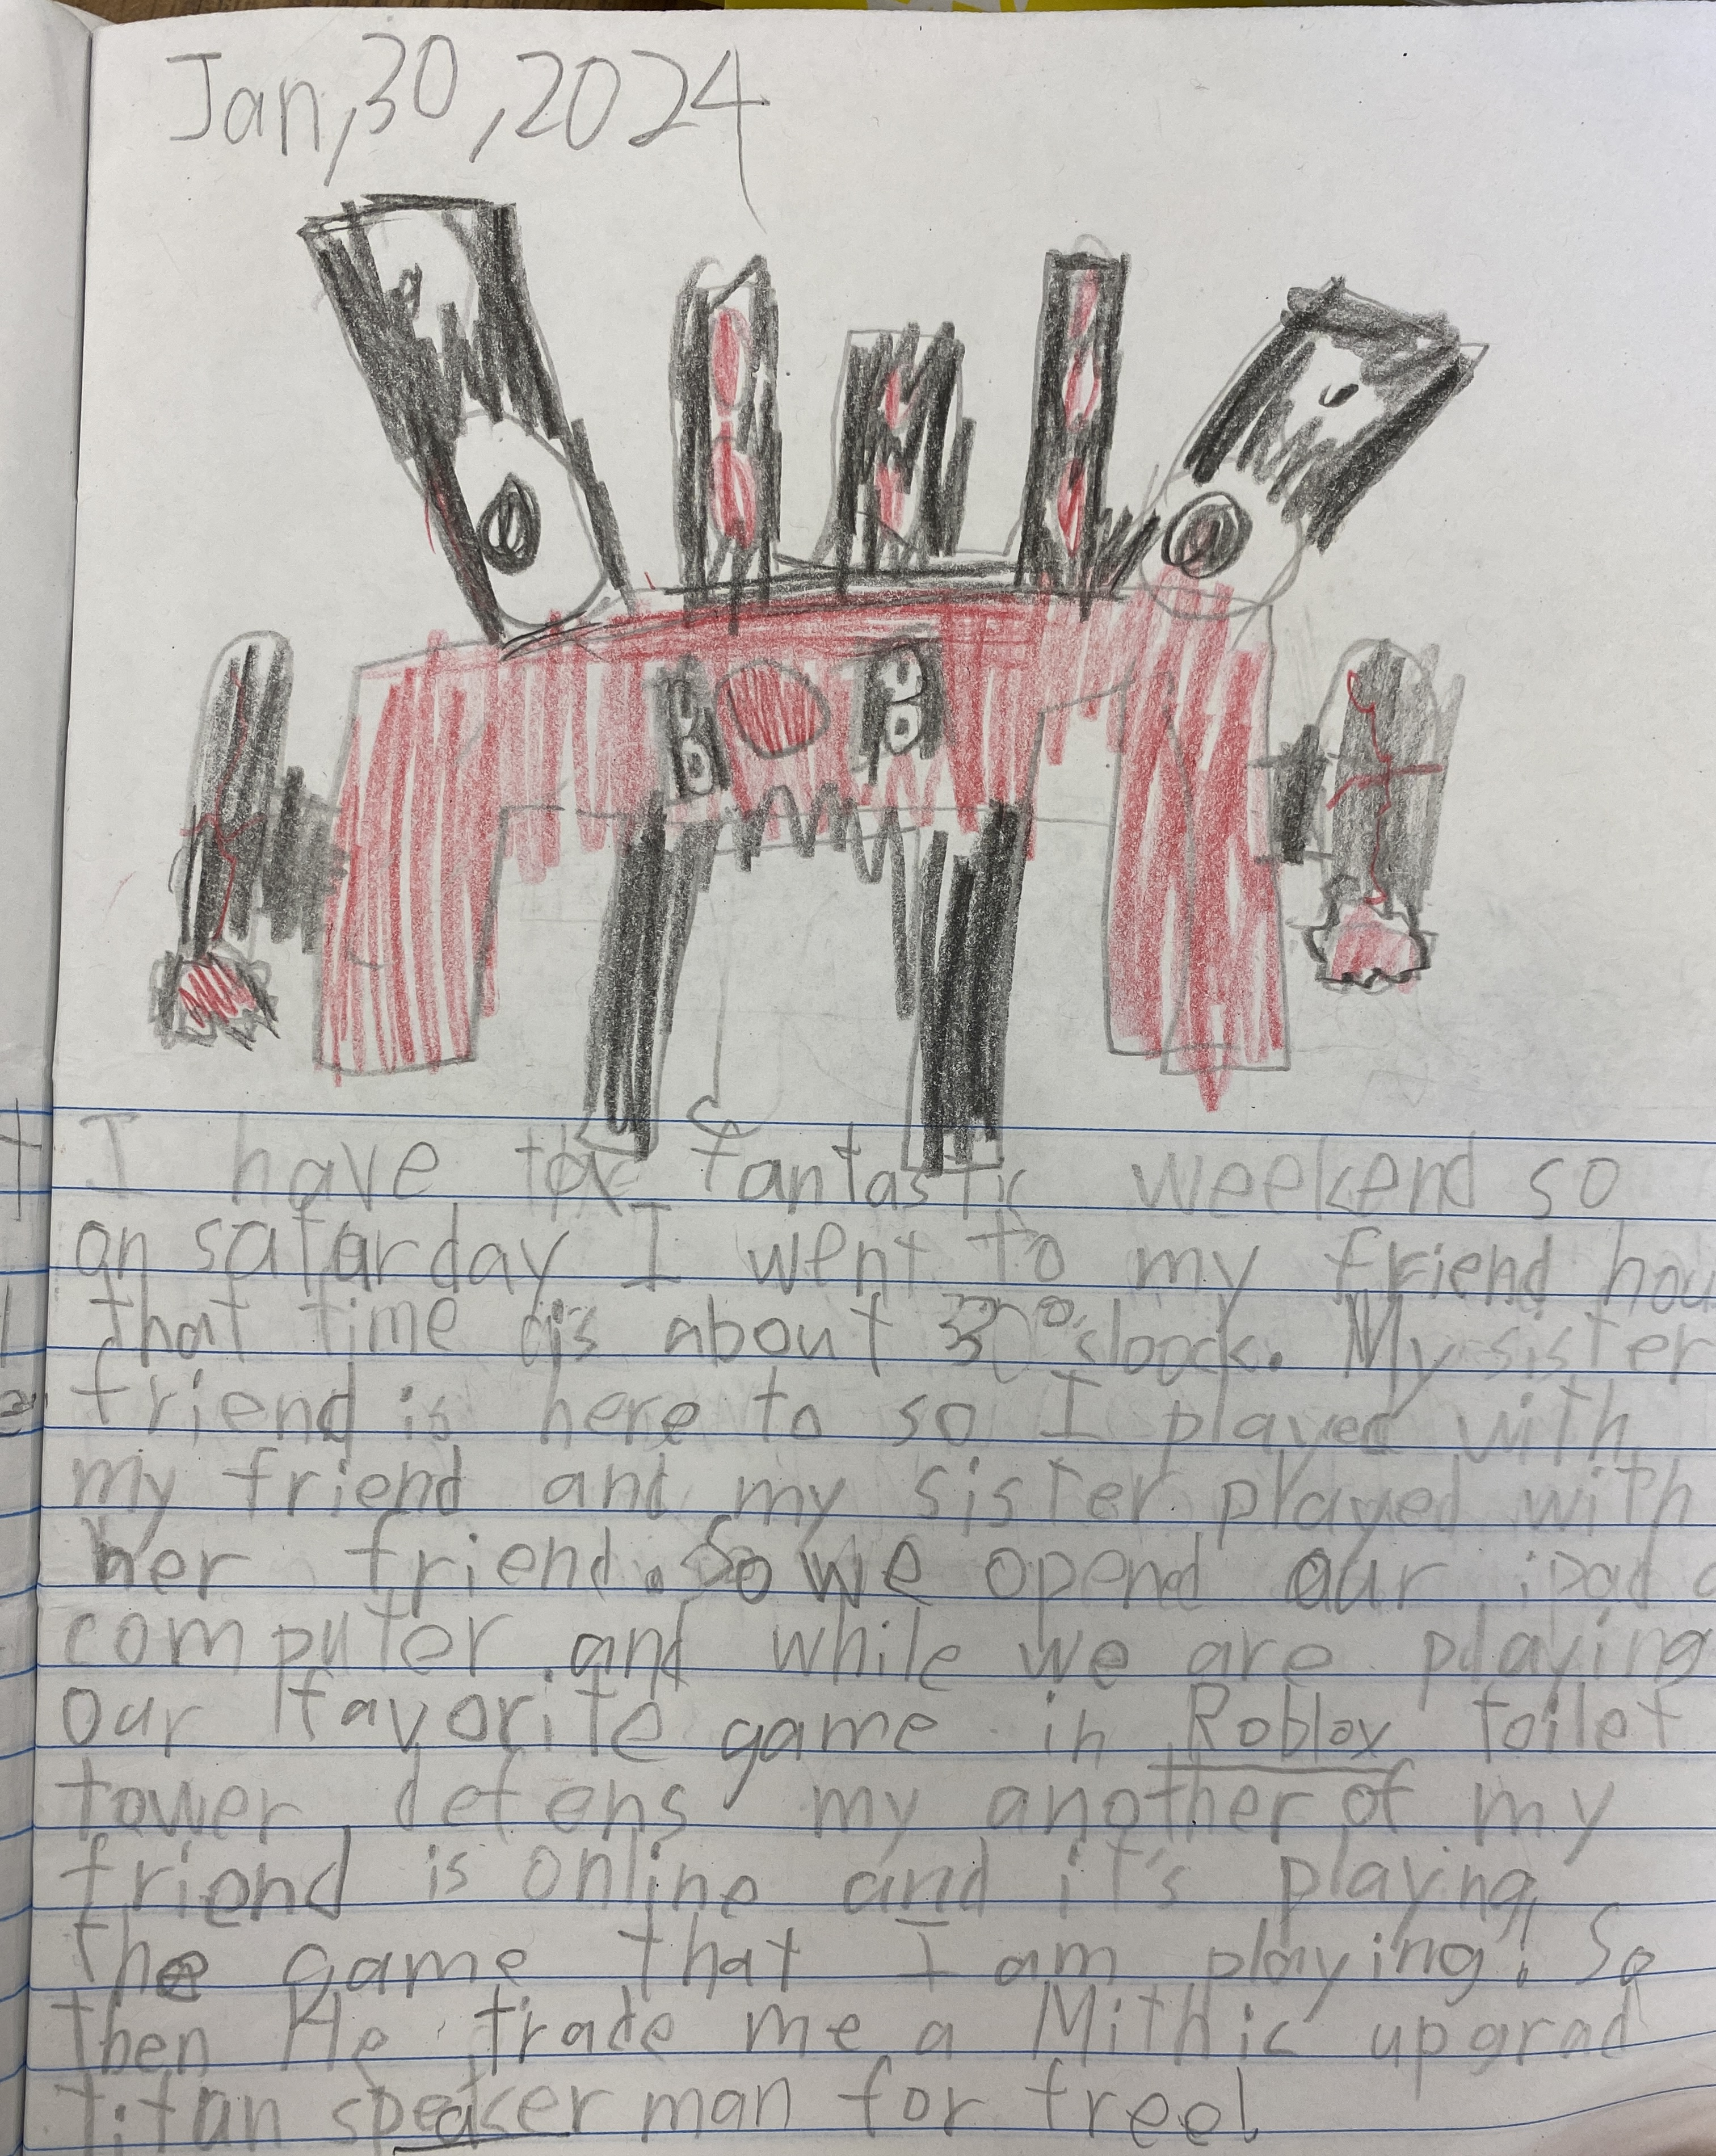 Jan,30,2024
I have fantastic weekend so
on satarday I went to my friend hou
that time is about 30 o'cloock. My sister
friend is here to so I played with
my friend and my sister played with
her friend. So we opend our ipad
computer and while we are playing
our favorite game in Roblox toilet
tower defens my another of my
friend is online and it's playing
the game that I am playing! So
Then He trade me a Mithic upgrad
titan speaker man for free!